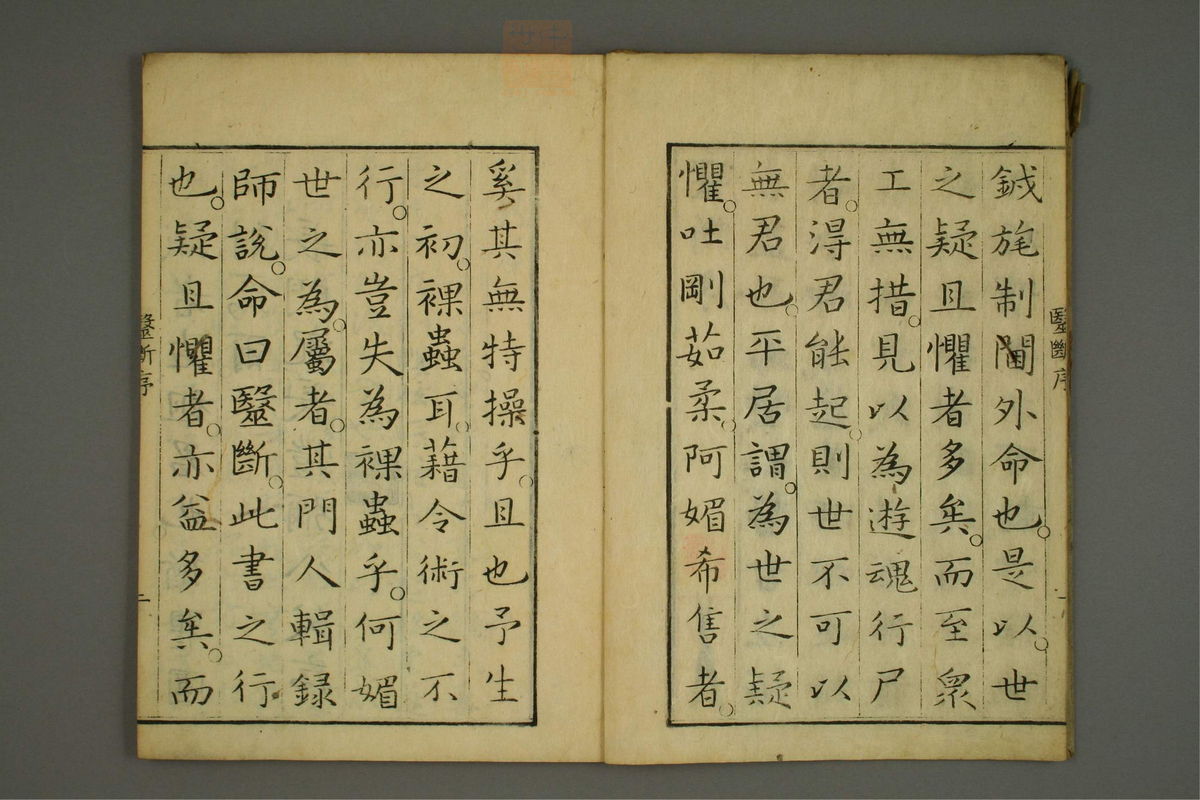 鉞旄制閫外命也。是以。世
之疑且懼者多矣。而至衆
工無措。見以為遊魂行尸
者。得君能起。則世不可以
無君也。平居謂。為世之疑
懼。吐剛茹柔。阿媚希售者。
奚其無特操乎。且也予生
之初。裸蟲耳。藉令術之不
行。亦豈失為裸蟲乎。何媚
世之為。屬者。其門人輯録
師說。命曰醫斷。此書之行
也。疑且懼者。亦益多矣。而
醫斷序
醫斷序